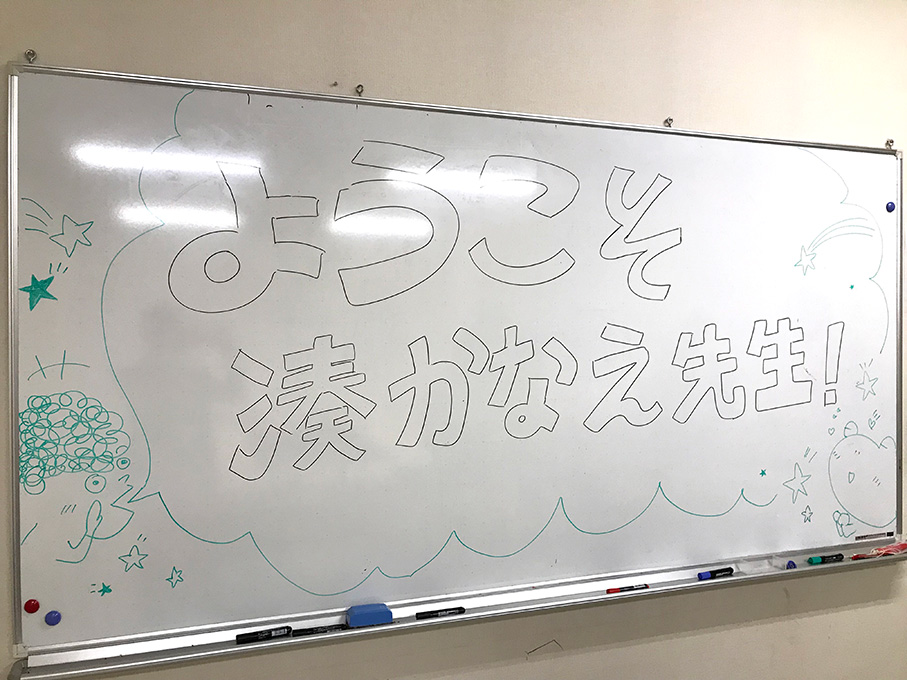 ようこそ
湊かなえ先生!